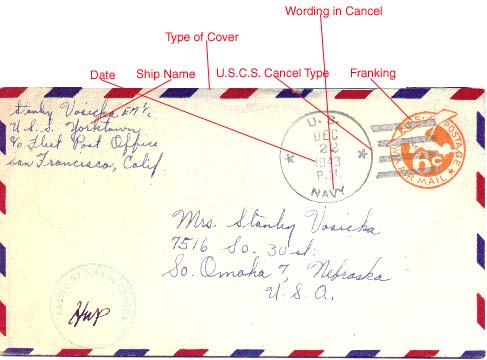 Wording in Cancel
Type of Cover
Date
Ship Name
U.S.C.S. Cancel Type
Franking
Stanley Vosicka EM 1/c
U.S.S. Yorktown
c/o Fleet Post Office
San Francisco, Calif
U.S.
DEC
22
1943
P.M.
NAVY
U.S. POSTAGE
6c
VIA AIR MAIL
Mrs. Stanley Vosicka
7516 So. 30 st.
So. Omaha 7, Nebraska
U.S.A.
PASSED BY NAVAL CENSOR